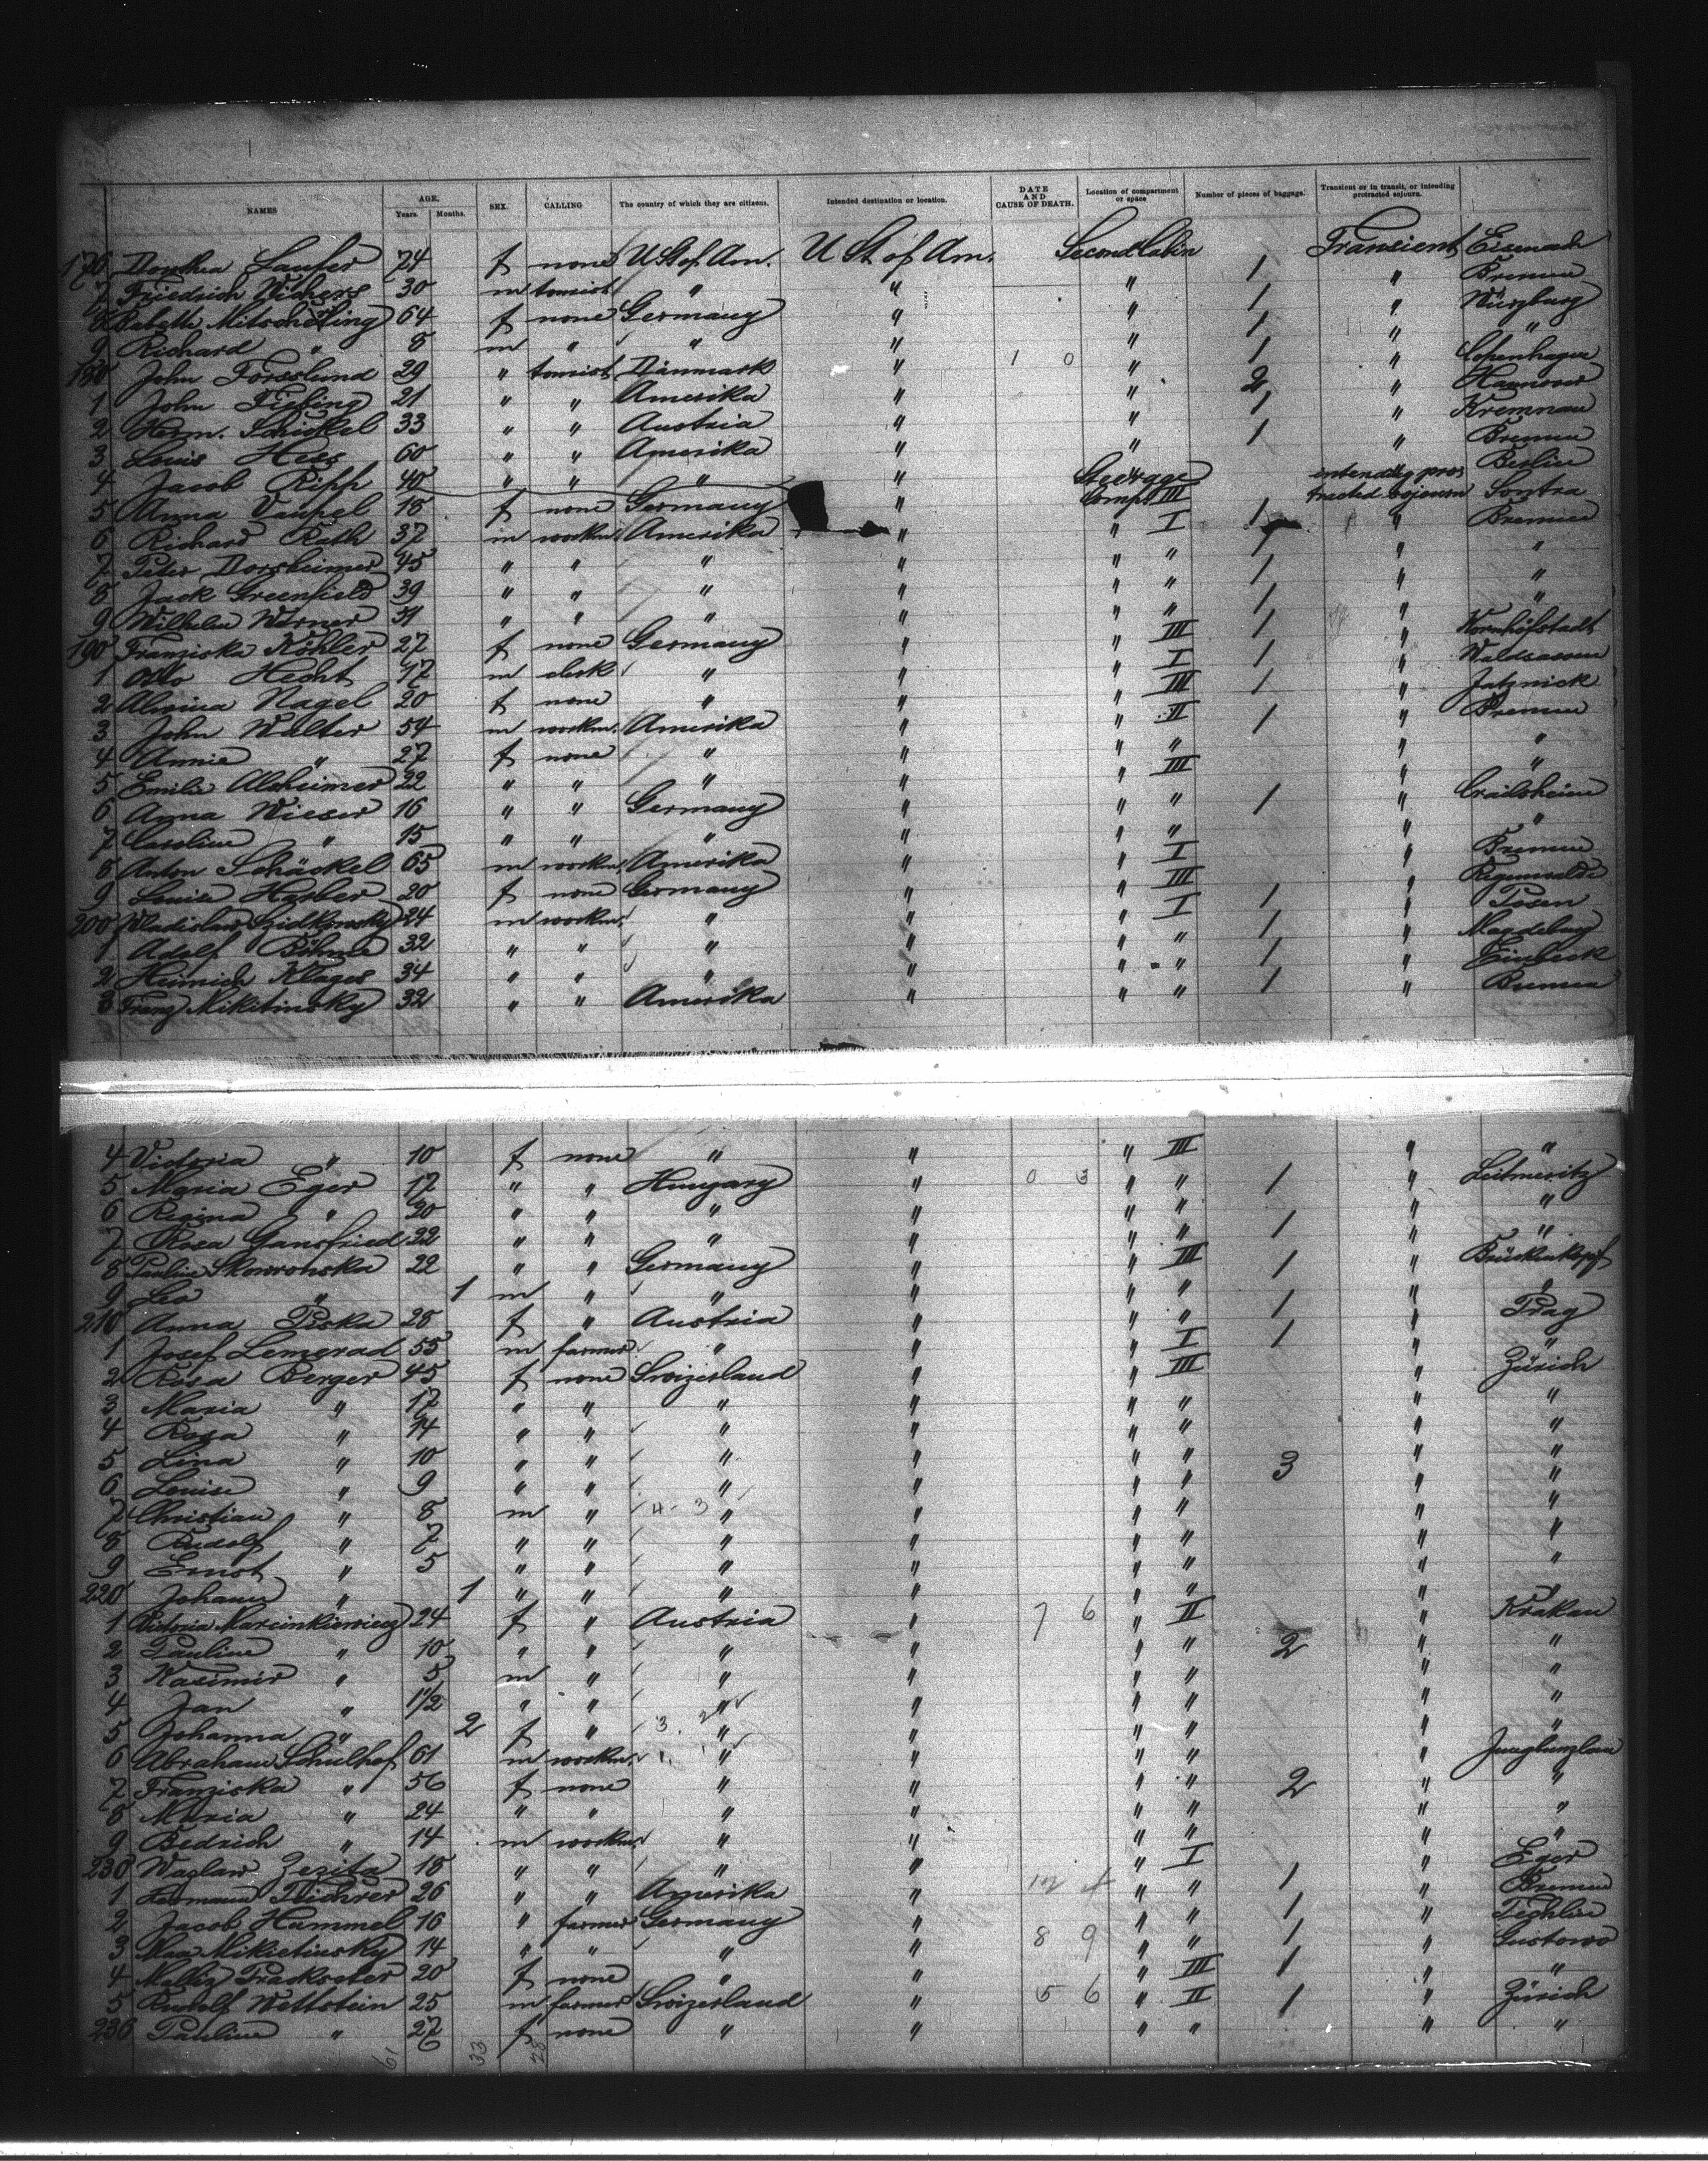 NAMES AGE. Years. Months. SEX. CALLING The country of which they are citizens. Intended destination or location. DATE AND CAUSE OF DEATH. Location of compartment or space Number of pieces of baggage. Transient or in transit, or intending protracted sojourn.
176 Dorothea Laufer 74 f none U St of Am. U St of Am. Second Cabin 1 Transient Eisenach
7 Friedrich Wichers 30 m tourist " " " 1 " Bremen
8 Babette 64 f none Germany " " 1 " Würzburg
9 Richard " 8 m " " " " 1 " "
180 John Forsslund 29 " tourist Dänmark " 1 0 " 1 " Copenhagen
1 John 21 " " Amerika " " 2 " Hannover
2 Herm. Schickel 33 " " Austria " " 1 " Kremnau
3 Louis Hess 60 " " Amerika " " 1 " Bremen
4 Jacob Ripp 40 " " " " " Berlin
5 Anna Vaupel 18 f none Germany " Steerage Compt III 1 intending protracted sojourn Sontra
6 Richard Rath 37 m workm. Amerika " " I 1 " Bremen
7 Peter Dorsheimer 45 " " " " " " 1 " "
8 Jack Greenfield 39 " " " " " " 1 " "
9 Wilhelm Werner 31 " " " " " " 1 " "
190 Franziska Köhler 27 f none Germany " " III 1 " Kornhöfstadt
1 Otto Hecht 17 m clerk " " " I 1 " Waldsassen
2 Alwina Nagel 20 f none " " " III 1 " Jatznick
3 John Walter 54 m workm. Amerika " " II 1 " Bremen
4 Annie " 27 f none " " " " " "
5 Emilie Alsheimer 22 " " " " " III " "
6 Anna Wieser 16 " " Germany " " " 1 " Crailsheim
7 Caroline " 15 " " " " " " " "
8 Anton Schäckel 65 m workm. Amerika " " I " Bremen
9 Louise Harber 20 f none Germany " " III 1 " Regenwalde
200 Wladislaw 24 m workm. " " " I 1 " Posen
1 Adolf Böhme 32 " " " " " " 1 " Magdeburg
2 Heinrich Klages 34 " " " " " " 1 " Einbeck
3 Franz Mikitinsky 32 " " Amerika " " " 1 " Bremen
4 Victoria " 10 f none " " " III " "
5 Maria Eger 17 " " Hungary " 0 3 " " 1 " Leitmeritz
6 Regina " 20 " " " " " " " "
7 Rosa Gansfried 22 " " " " " " 1 " "
8 Pauline Skowronska 22 " " Germany " " III 1 " Brückenkopf
9 Leo " 1 m " " " " " " "
210 Anna Peska 28 f " Austria " " " 1 " Prag
1 Josef Lemerad 55 m farmer " " " I 1 " "
2 Rosa Berger 45 f none Swizerland " " III " Zürich
3 Maria " 17 " " " " " " " "
4 Rosa " 14 " " " " " " " "
5 Lina " 10 " " " " " " 3 " "
6 Louise " 9 " " " " " " " "
7 Christian " 8 m " 4 - 3 " " " " " "
8 Rudolf " 7 " " " " " " " "
9 Ernst " 5 " " " " " " " "
220 Johann " 1 " " " " " " " "
1 Victoria Marcinkiewicz 24 f " Austria " 7 6 " II " Krakau
2 Pauline " 10 " " " " " " 2 " "
3 Kasimir " 5 m " " " " " " "
4 Jan " 1 1/2 " " " " " " " "
5 Johanna " 2 f " 3. 2 " " " " " "
6 Abraham Schulhof 61 m workm. " " " " " Jungbunzlau
7 Franziska " 56 f none " " " " 2 " "
8 Maria " 24 " " " " " " " "
9 Bedrich " 14 m workm. " " " " " "
230 Waglaw Zezita 18 " " " " " I 1 " Eger
1 Hermann 26 " " Amerika " " " 1 " Bremen
2 Jacob Hummel 16 " farmer Germany " " " 1 " Techlin
3 Max Mikietinsky 14 " " " " 8 9 " " 1 " Gustowo
4 20 f none " " " III 1 " "
5 Rudolf Wettstein 25 m farmer Swizerland " 5 6 " II 1 " Zürich
236 Pauline " 27 f none " " " " " "
61 33 28